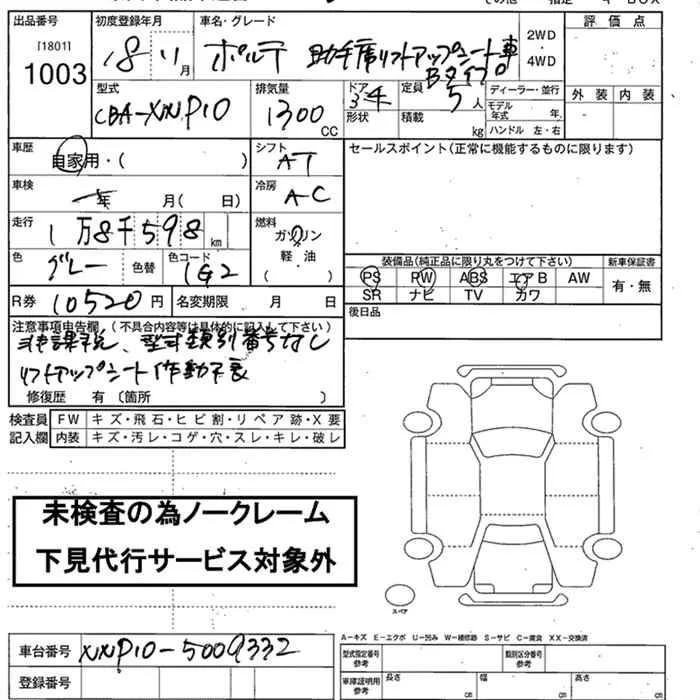 出品番号
[1801]
1003
初度登録年月
18年11月
車名・グレード
ポルテ 助手席リフトアップシート車
Bタイプ
2WD
・
4WD
評価点
外装 内装
型式
CBA-NNP10
排気量
1300
CC
ドア
形状
定員
5人
積載
kg
ディーラー・並行
モデル
年式 年
ハンドル 左・右
車歴
自家用・( )
シフト
AT
セールスポイント(正常に機能するものに限ります)
車検
年 月( 日)
冷房
AC
走行
1万8千598km
燃料
ガソリン
軽油
( )
色
グレー
色替
色コード
1G2
装備品(純正品に限り丸をつけて下さい)
新車保証書
PS PW ABS エアB AW
有・無
SR ナビ TV カワ
R券 10520円
名変期限 月 日
後日品
注意事項申告欄(不具合内容等は具体的に記入して下さい)
非課税、型式類別番号なし
リフトアップシート作動不良
修復歴 有〔箇所 〕
検査員
記入欄
FW キズ・飛石・ヒビ割・リペア跡・X要
内装 キズ・汚レ・コゲ・穴・スレ・キレ・破レ
未検査の為ノークレーム
下見代行サービス対象外
スペア
車台番号 NNP10-5009332
登録番号
A-キズ E-エクボ U-凹み W-補修跡 S-サビ C-腐食 XX-交換済
型式指定番号
参考
類別区分番号
参考
車庫証明用
参考
長さ cm
幅 cm
高さ cm